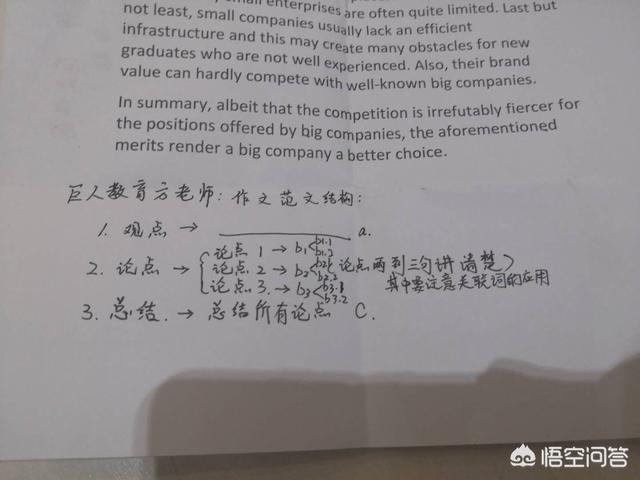 enterprises are often quite limited. Last but
not least, small companies usually lack an efficient
infrastructure and this may create many obstacles for new
graduates who are not well experienced. Also, their brand
value can hardly compete with well-known big companies.
In summary, albeit that the competition is irrefutably fiercer for
the positions offered by big companies, the aforementioned
merits render a big company a better choice.
巨人教育方老师：作文范文结构：
1. 观点 → a.
2. 论点 → 论点 1 → b1 b1.1 b1.2
论点 2 → b2 b2.1 b2.2 论点两到三句讲清楚
论点 3. → b3 b3.1 b3.2 其中要注意关联词的应用
3. 总结. → 总结所有论点 C.
悟空问答